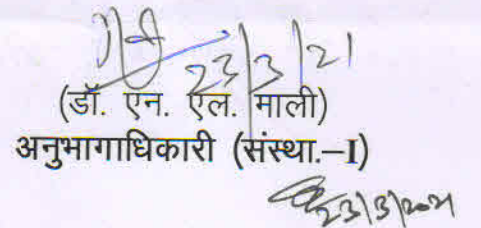 23/3/21
(डॉ. एन. एल. माली)
अनुभागाधिकारी (संस्था.–I)
23/3/2021